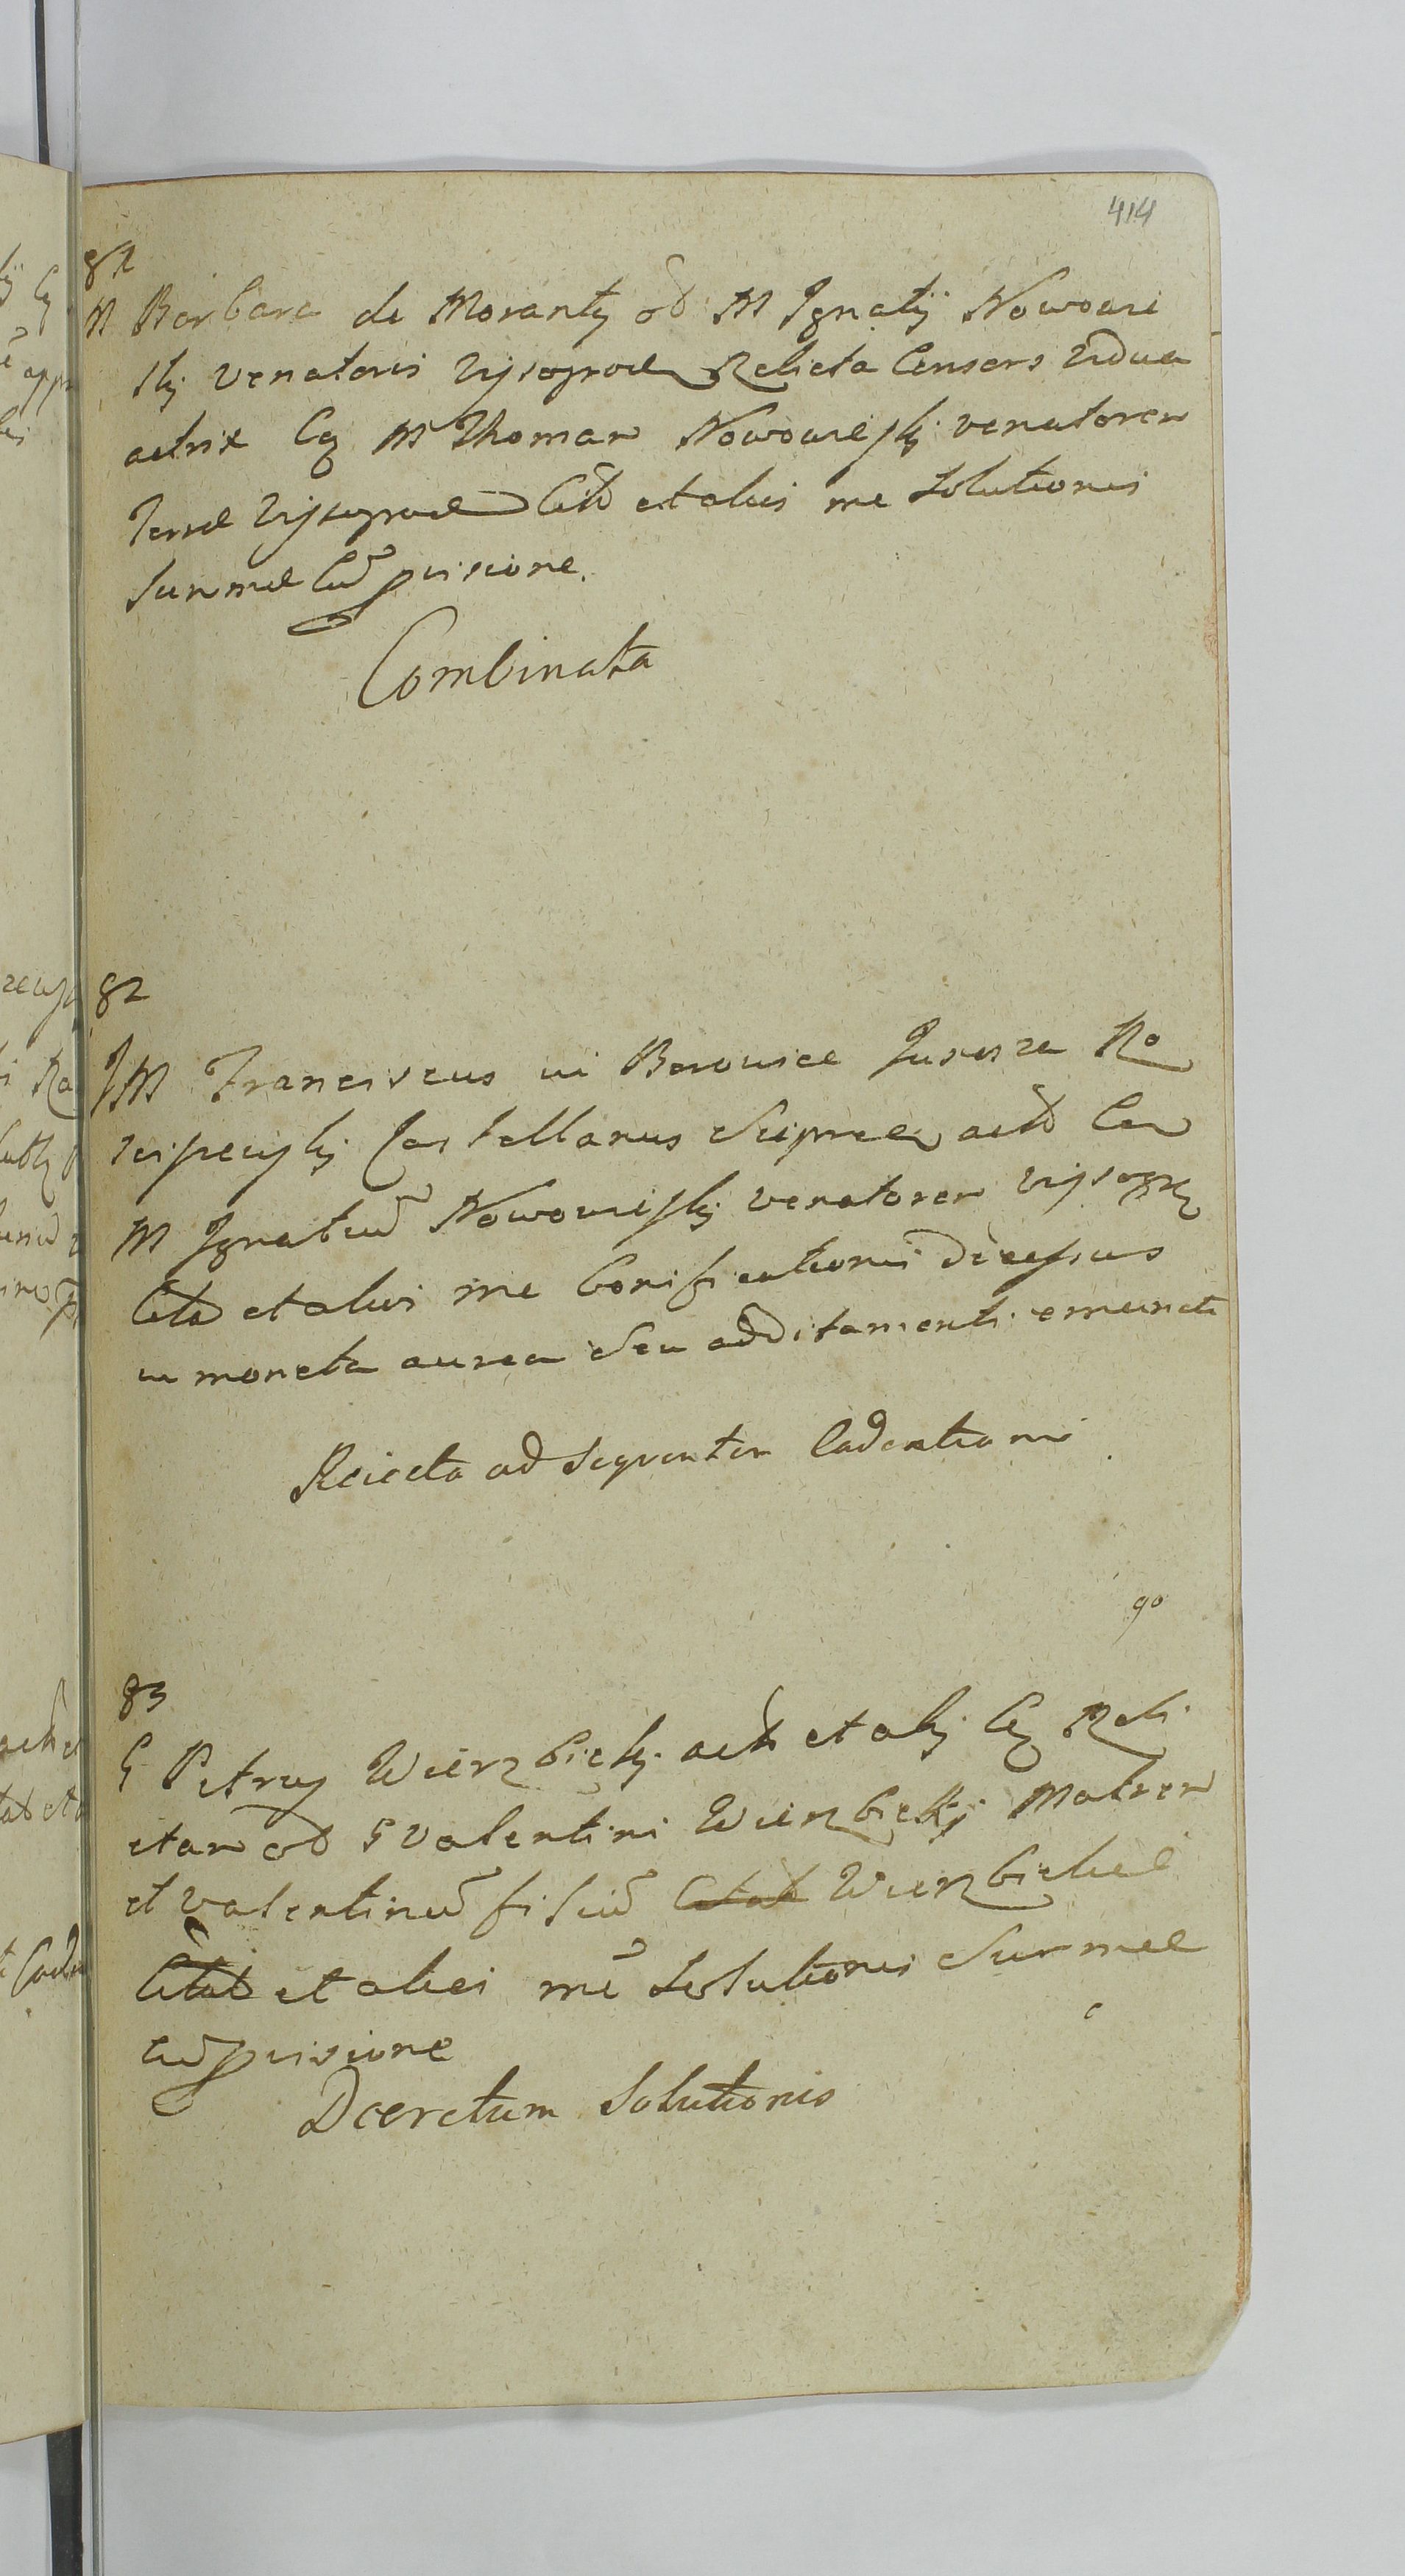 414
81
M Barbara de Moranty od M Ignatij Nowowiei
skj venatoris Vyssogrod Relicta Consors Vidua
actrix Cq M Thomam Nowowiejskj venatorem
Terrae Vyssogrod Citt et alios me Solutionis
Summae Cum pvisione.
Combinata
82
JM Franciscus in Borowice Junosza Ro
sciszewskj Castellanus Scipnen act Con
M Ignatium Nowowiejskj venatorem Vyssogr
Citt et alios me bonificationis decessus
in moneta aurea seu additamenti emuncti
Reiecta ad sequentem Cadentiam
90
83
G Petrus Wierzbickj act et alij Cq Reli
ctam od G Valentini Wierzbickj Matrem
et Valentinum filium Wierzbickie
Citt et alios me Solutionis Summae
cum pvisione
Decretum Solutionis